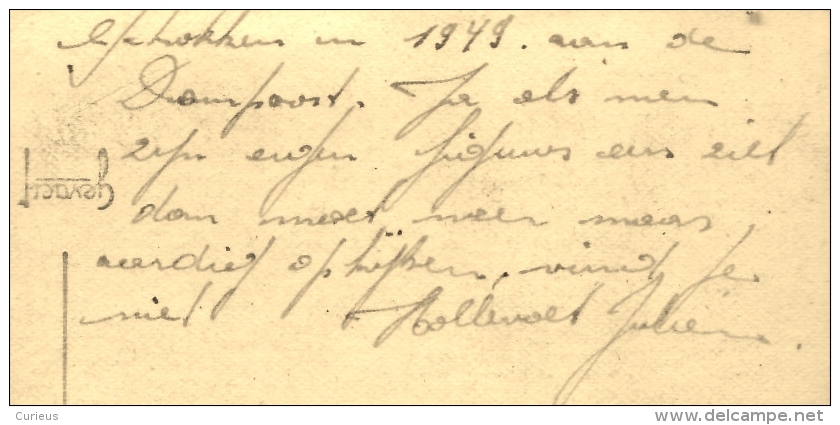 Getrokken in 1949. aan de
Dampoort. Ja als men
zijn eigen figuur eens ziet
dan moet men maar
aardig opkijken, vind je
niet Hollevoet Julien.
Gevaert
© Curieus
delcampe.net